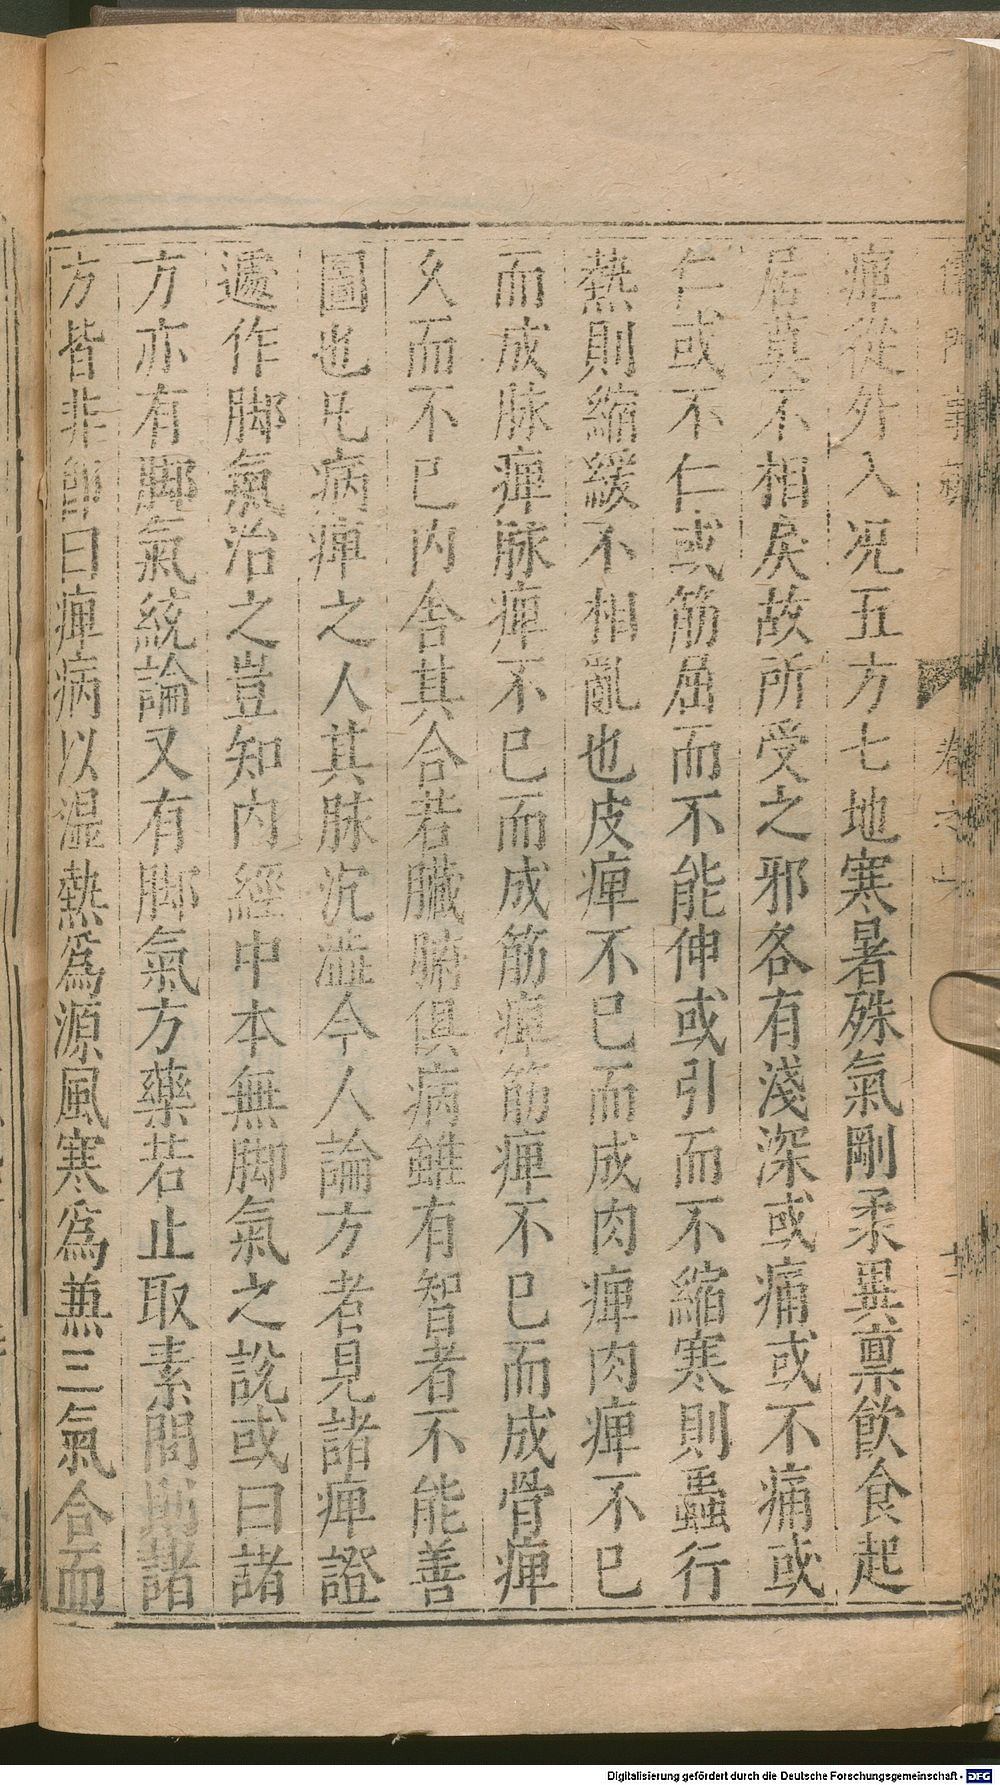 儒門事親 卷之一 十三
痺從外入况五方七地寒暑殊氣剛柔異禀飲食起
居莫不相戾故所受之邪各有淺深或痛或不痛或
仁或不仁或筋屈而不能伸或引而不縮寒則蟲行
熱則縮緩不相亂也皮痺不已而成肉痺肉痺不已
而成脉痺脉痺不已而成筋痺筋痺不已而成骨痺
久而不已内舍其合若臟腑俱病雖有智者不能善
圖也凡病痺之人其脉沉澁今人論方者見諸痺證
遽作脚氣治之豈知内經中本無脚氣之說或曰諸
方亦有脚氣統論又有脚氣方藥若止取素問則諸
方皆非耶曰痺病以濕熱爲源風寒爲兼三氣合而
Digitalisierung gefördert durch die Deutsche Forschungsgemeinschaft - DFG